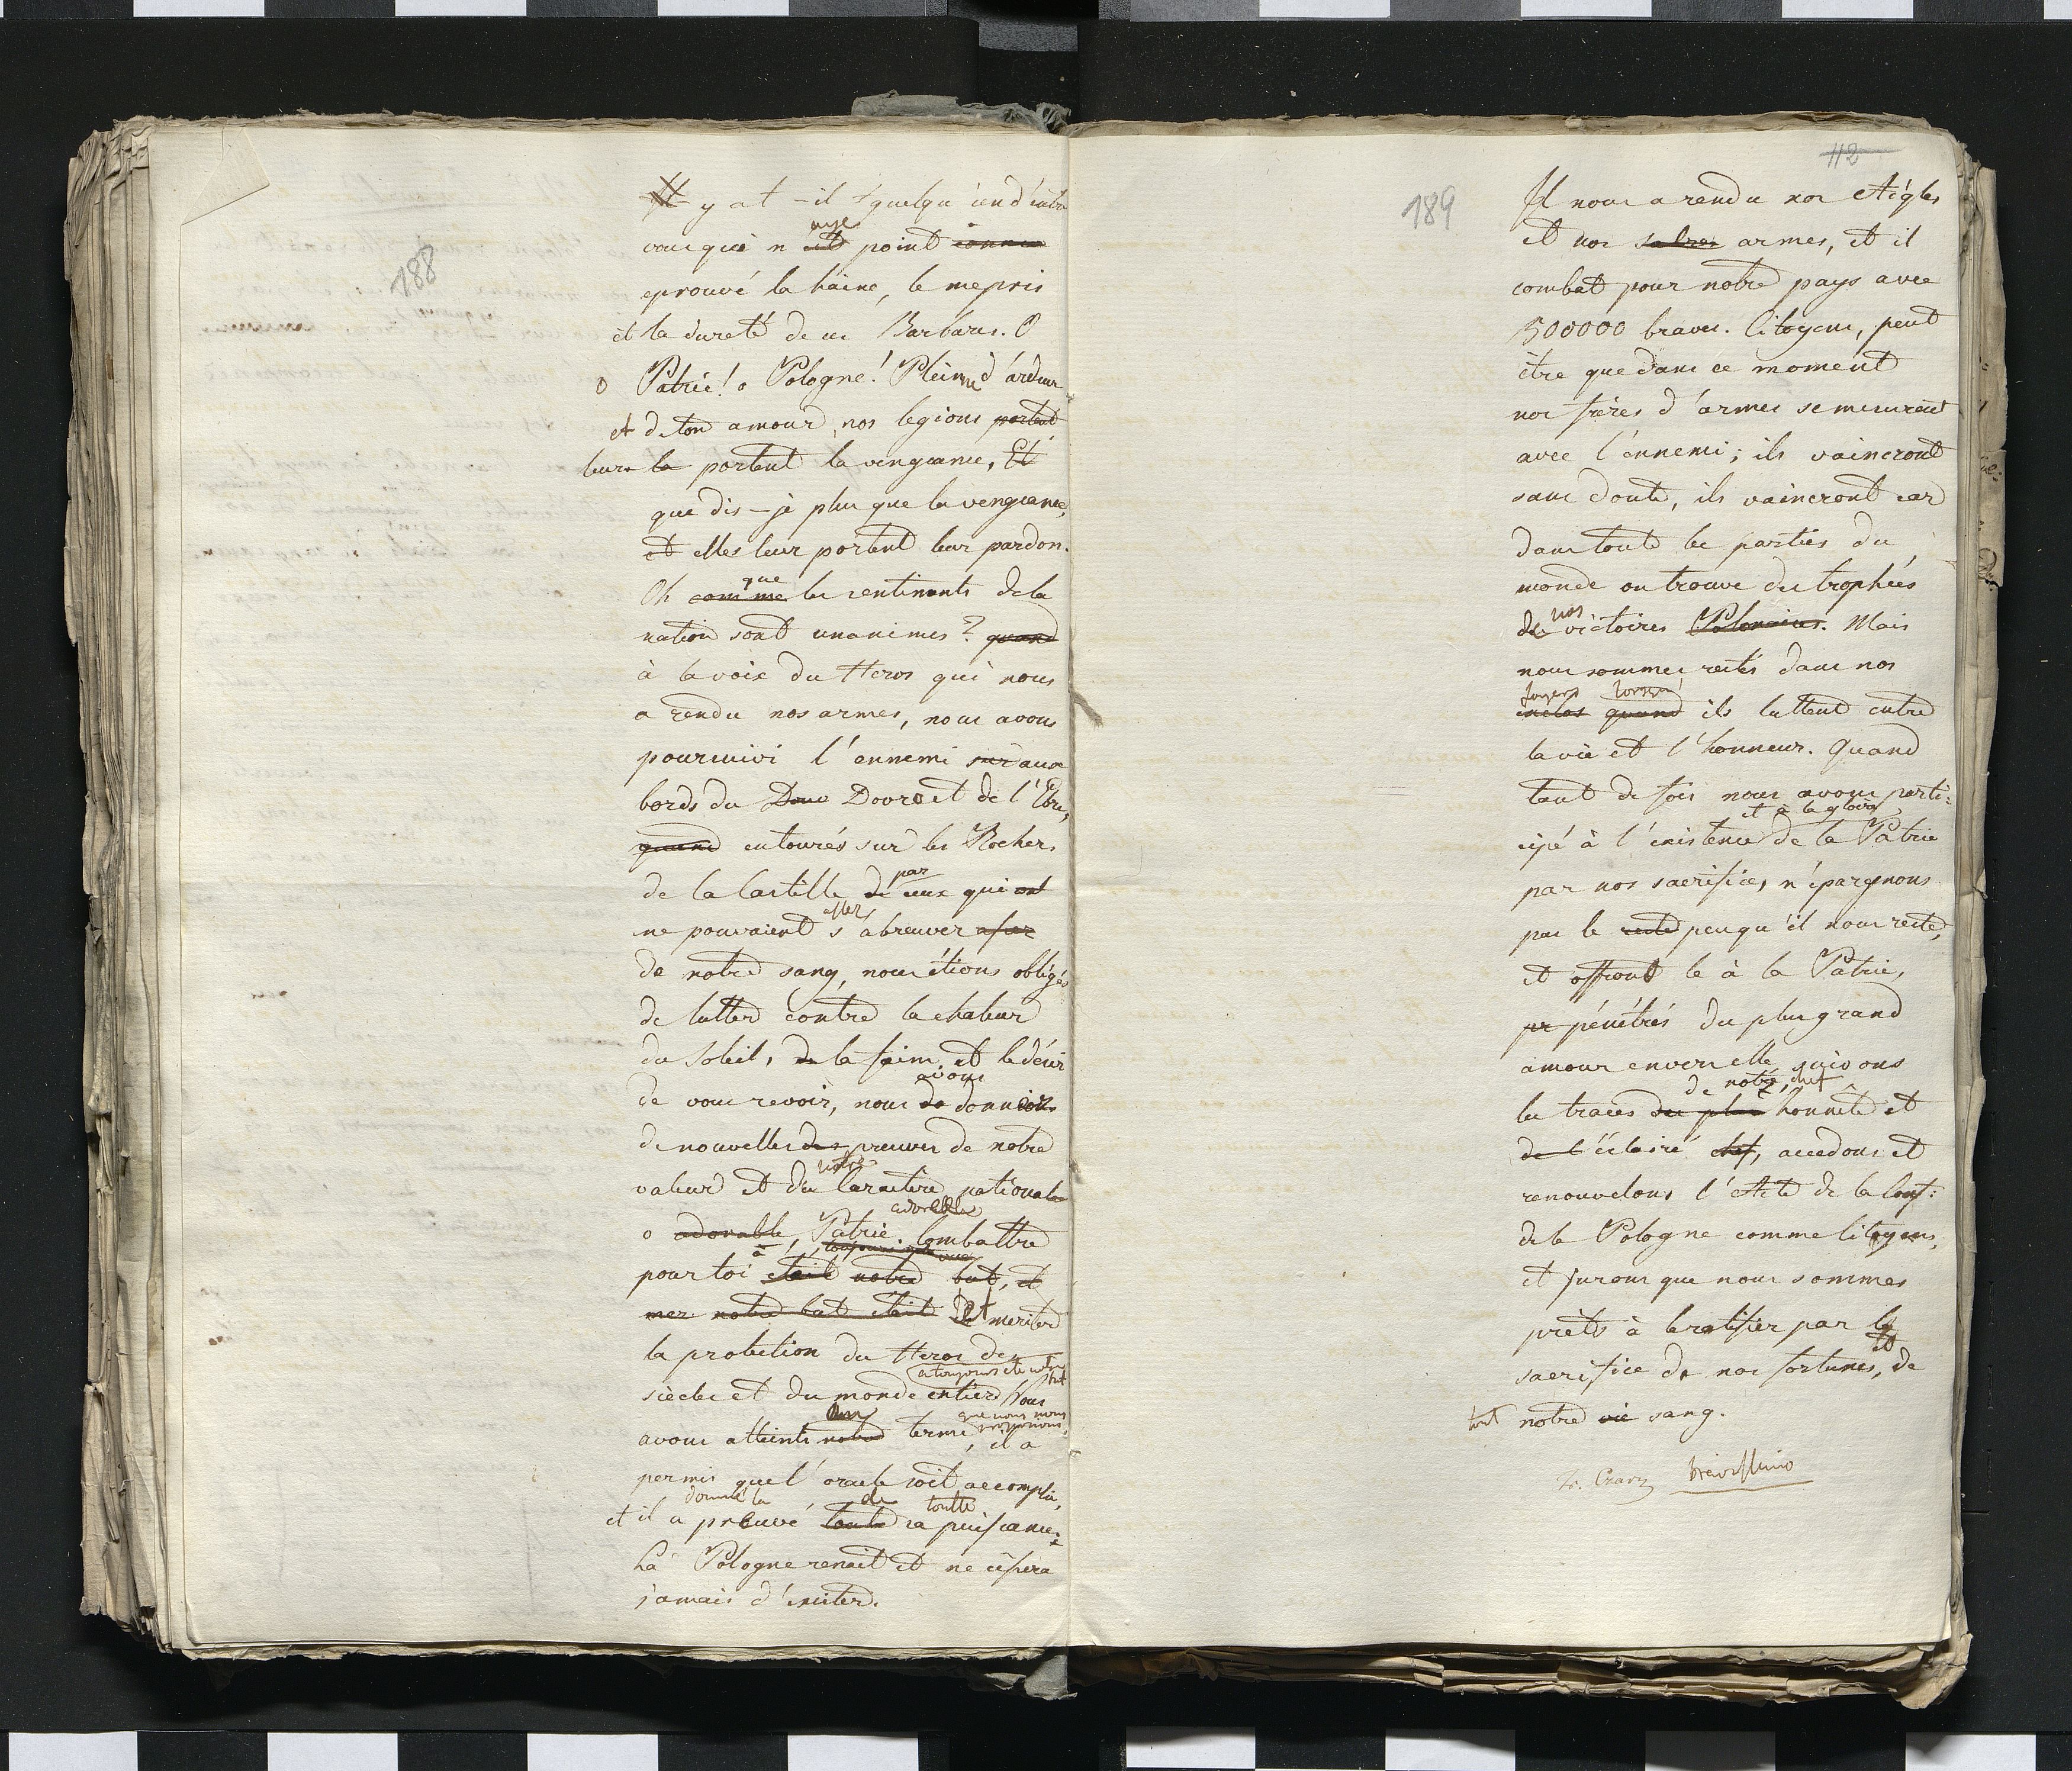 188
y at-il quelqu'un d'entre
aye
vous qui n'ait point connu
eprouvé la haine, le mepris
et la dureté de ces Barbares. O
o Patrie! o Pologne! Pleinne d'ardeur
et de ton amour, nos legions portent
leur la portent la vengeance, Et
que dis-je plus que la vengeance,
et elles leur portent leur pardon.
que
Oh comme les sentiments de la
nation sont unanimes? quand
à la voix du Heros qui nous
a rendu nos armes, nous avons
poursuivi l'ennemi sur aux
bords du Douro et de l'Ebre,
quand entourés sur les Rochers
par
de la Castille de ceux qui ont
assez
ne pouvaient s'abreuver assez
de notre sang, nous étions obligés
de lutter contre la chaleur
du Soleil, de la faim et le désir
avons
de vous revoir, nous do donnions
de nouvelles des preuves de notre
notre
valeur et du Caractere national
adorable
o adorable, Patrie. Combattre
à toujours
pour toi etait notre but, et
mer notre but etait Et meriter
la protection du Heros des
a toujours ete notre but
siècles et du monde entier Nous
que nous nous proposions,
avons atteints notre terme, il a
permis que l'oracle soit accompli,
donné la de toutte
et il a preuvé toute sa puissance.
La Pologne renait et ne cessera
jamais d'exister.
112
189
Il nous a rendu nos Aigles
et nos sabres armes, et il
combat pour notre pays avec
500000 braves. Citoyens, peut
être que dans ce moment
nos frères d'armes se mesurent
avec l'ennemi; ils vaincront
sans doute, ils vaincront car
dans toute les parties du
monde on trouve des trophées
nos
de victoires Polonaises. Mais
nous sommes restés dans nos
foyers lorsque
enclos quand ils luttent entre
la vie et l'honneur. Quand
tant de fois nous avons parti:
et à la gloire
cipé à l'existence de la Patrie
par nos sacrifices, n'épargnons
pas le reste peu qu'il nous reste,
et offront le à la Patrie,
pr pénétrés du plus grand
amour envers elle suivons
de notre chef
les traces du plus honnête et
de l'éclairé chef, accedons et
renouvelons l'Acte de la Conf:
de la Pologne comme Citoyens,
et jurons que nous sommes
prêts à le ratifier par le
et
sacrifice de nos fortunes, de
tout notre vie sang.
brevissimo